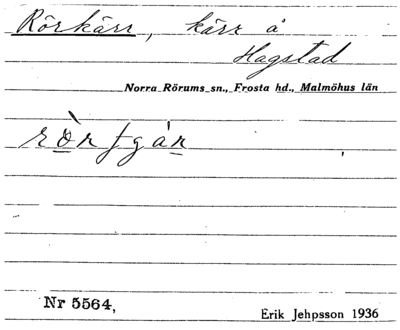 Rörkärr, kärr å
Hagstad
Norra Rörums sn., Frosta hd., Malmöhus län
Nr 5564,
Erik Jehpsson 1936